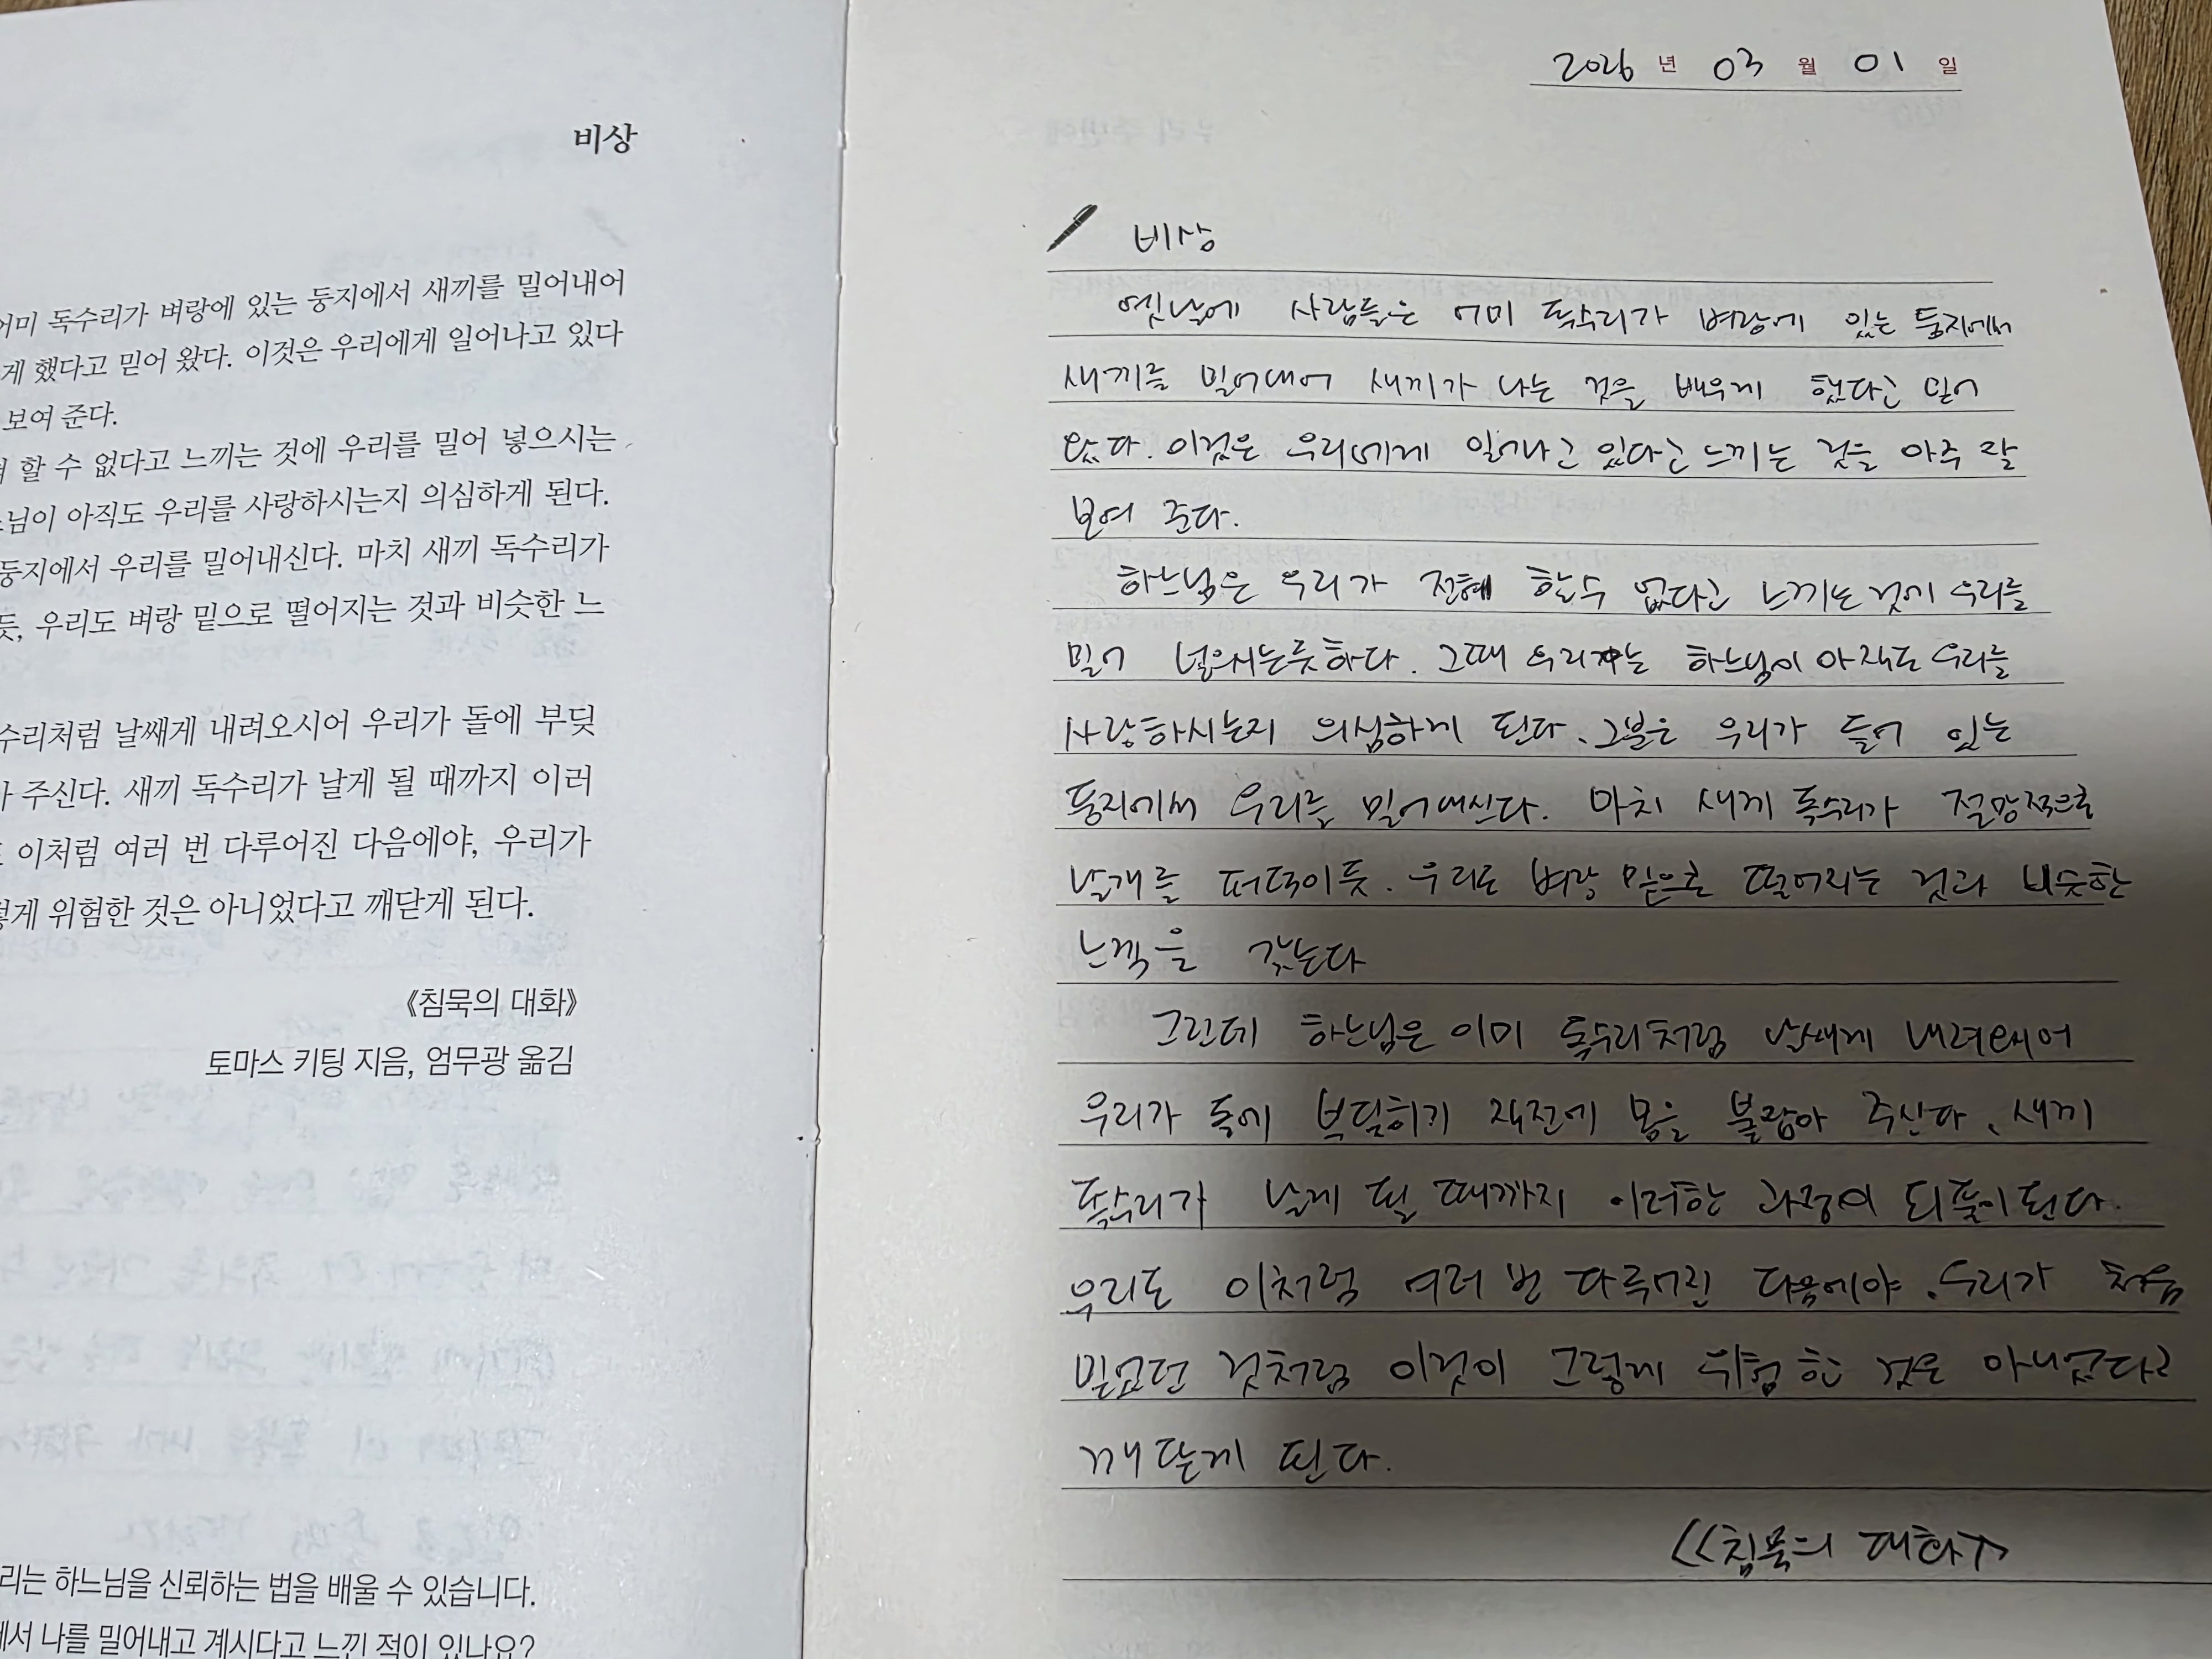 비상
어미 독수리가 벼랑에 있는 둥지에서 새끼를 밀어내어
게 했다고 믿어 왔다. 이것은 우리에게 일어나고 있다
보여 준다.
할 수 없다고 느끼는 것에 우리를 밀어 넣으시는
느님이 아직도 우리를 사랑하시는지 의심하게 된다.
둥지에서 우리를 밀어내신다. 마치 새끼 독수리가
듯, 우리도 벼랑 밑으로 떨어지는 것과 비슷한 느
수리처럼 날쌔게 내려오시어 우리가 돌에 부딪
주신다. 새끼 독수리가 날게 될 때까지 이러
이처럼 여러 번 다루어진 다음에야, 우리가
렇게 위험한 것은 아니었다고 깨닫게 된다.
《침묵의 대화》
토마스 키팅 지음, 엄무광 옮김
리는 하느님을 신뢰하는 법을 배울 수 있습니다.
에서 나를 밀어내고 계시다고 느낀 적이 있나요?
2026 년 03 월 01 일
비상
옛날에 사람들은 어미 독수리가 벼랑에 있는 둥지에서
새끼를 밀어내어 새끼가 나는 것을 배우게 했다고 믿어
왔다. 이것은 우리에게 일어나고 있다고 느끼는 것을 아주 잘
보여 준다.
하느님은 우리가 전혀 할수 없다고 느끼는 것에 우리를
밀어 넣으시는듯하다. 그때 우리는 하느님이 아직도 우리를
사랑하시는지 의심하게 된다. 그분은 우리가 들어 있는
둥지에서 우리를 밀어내신다. 마치 새끼 독수리가 절망적으로
날개를 퍼덕이듯. 우리도 벼랑 밑으로 떨어지는 것과 비슷한
느낌을 갖는다
그런데 하느님은 이미 독수리처럼 날쌔게 내려오시어
우리가 돌에 부딪히기 직전에 몸을 붙잡아 주신다. 새끼
독수리가 날게 될 때까지 이러한 과정이 되풀이된다.
우리도 이처럼 여러 번 다루어진 다음에야. 우리가 처음
믿었던 것처럼 이것이 그렇게 위험한 것은 아니었다고
깨닫게 된다.
<<침묵의 대화>>